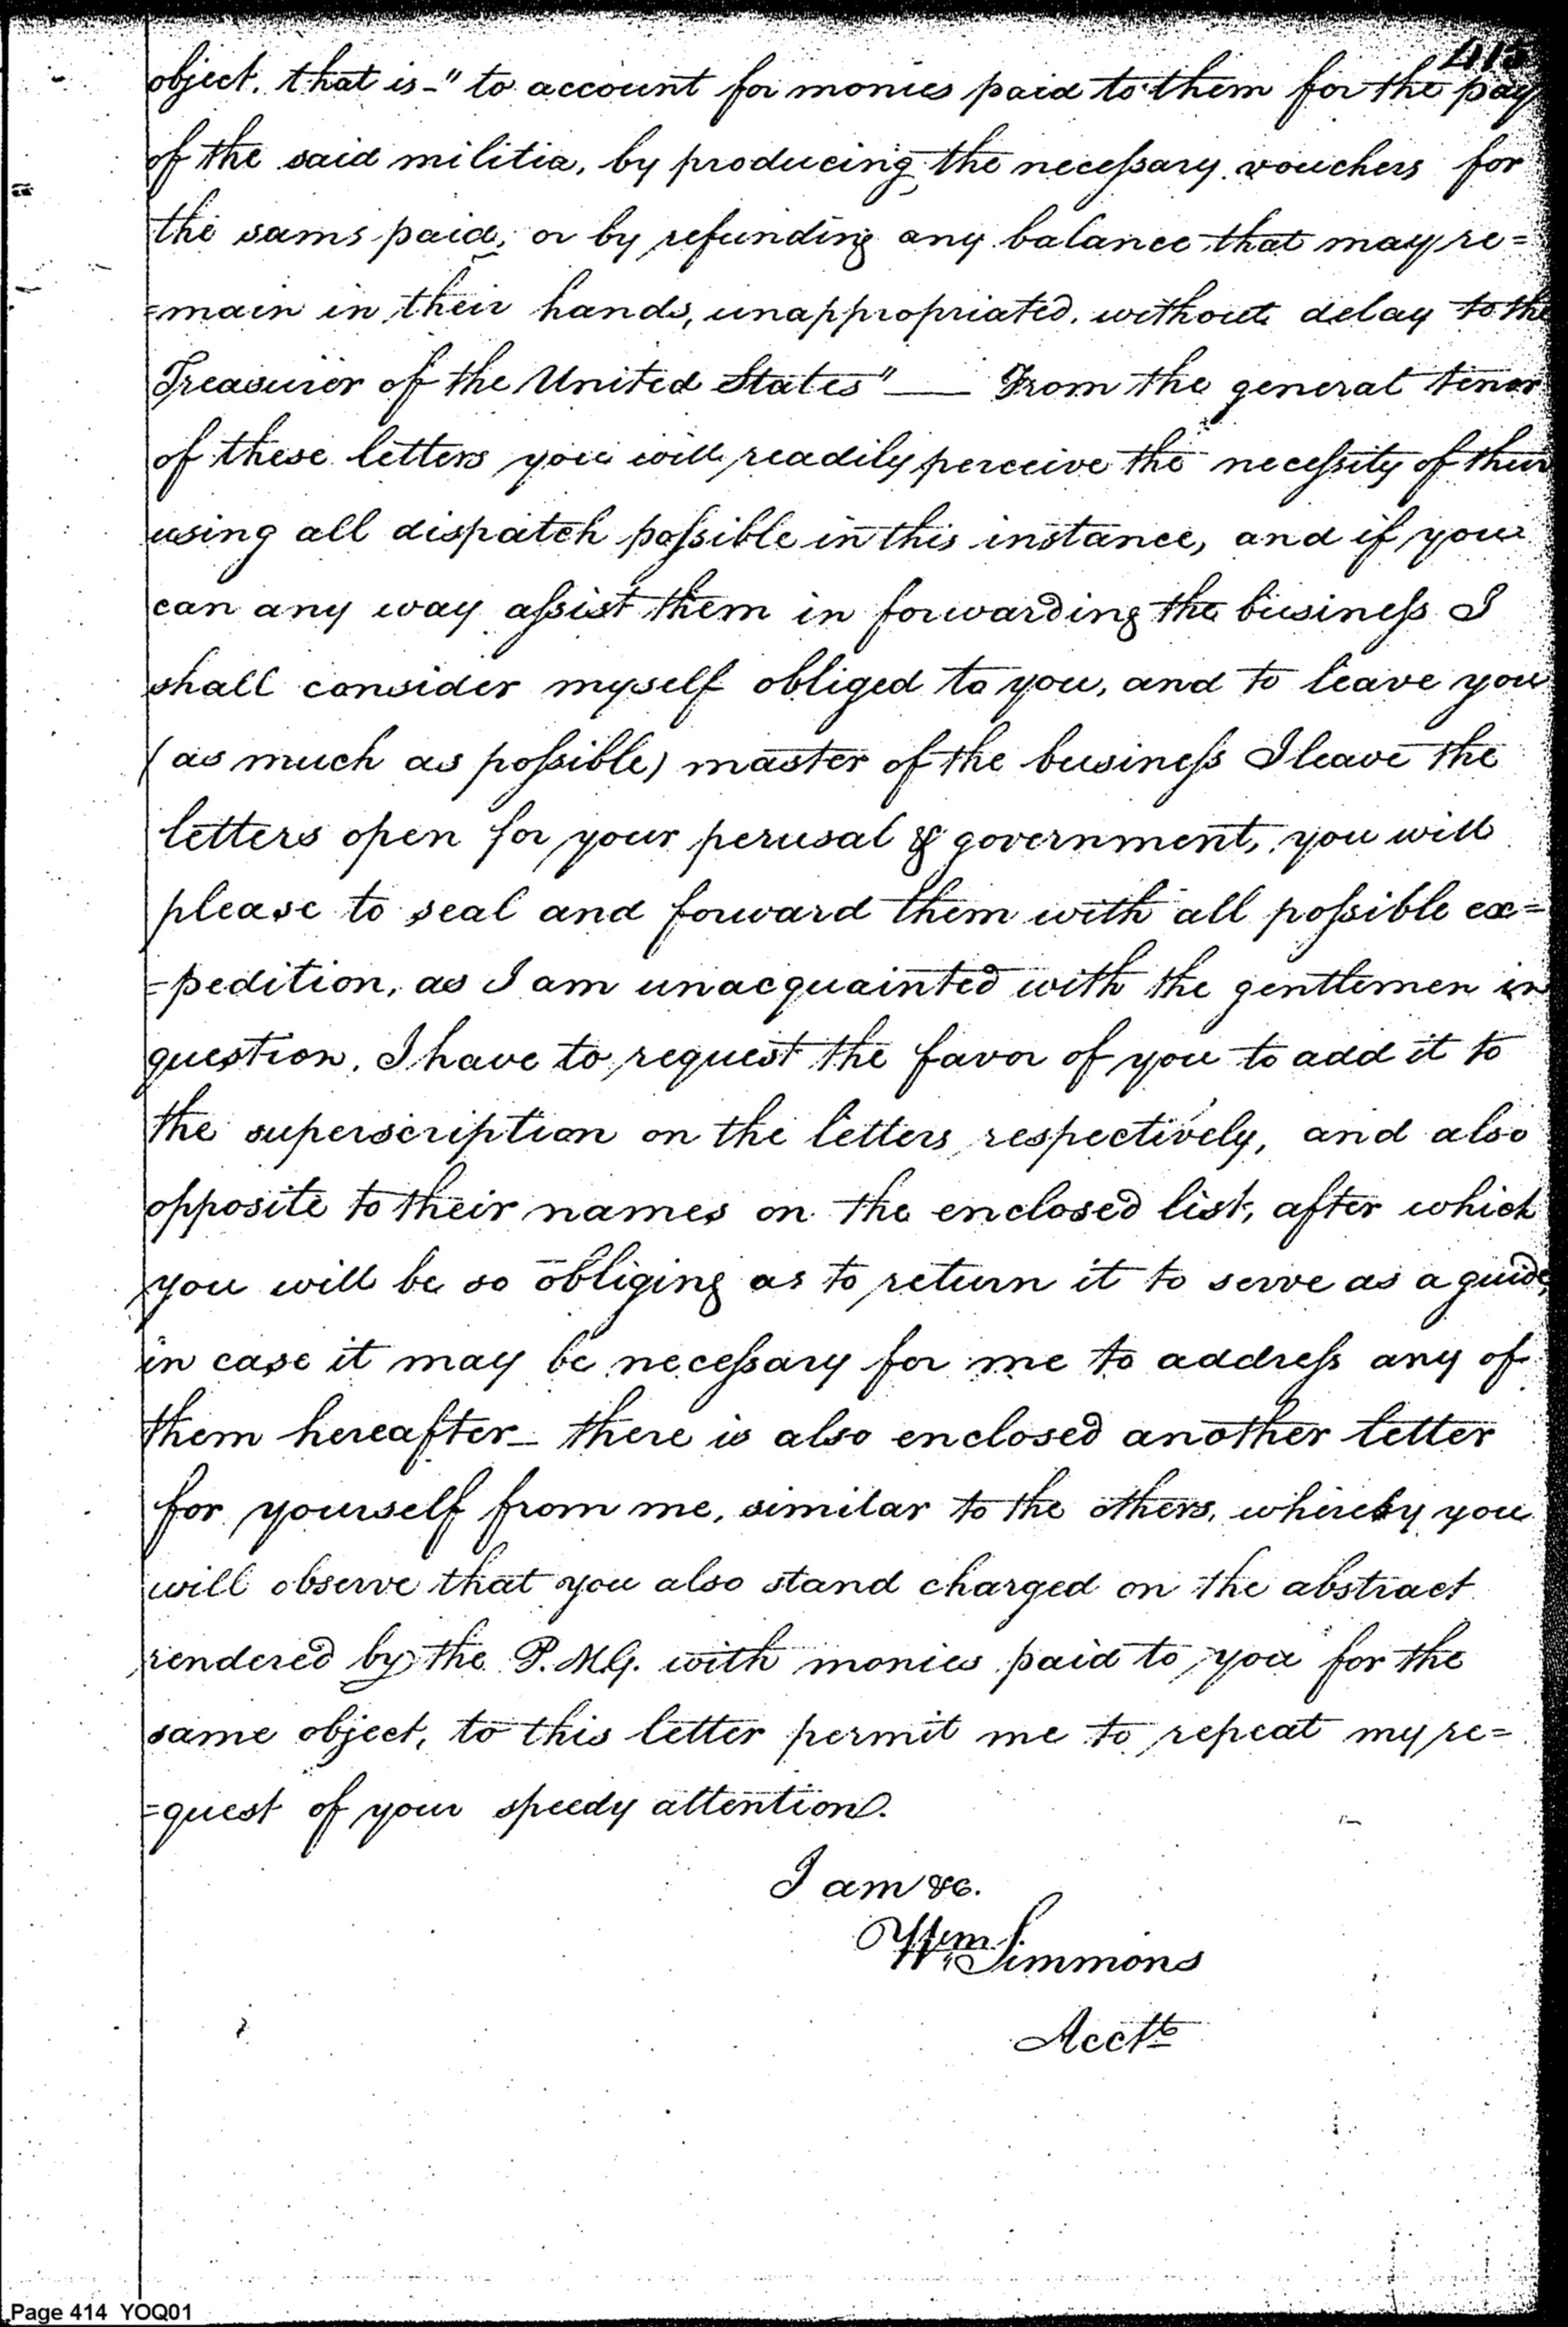 415
object, that is - " to account for monies paid to them for the pay
of the said militia, by producing the necessary vouchers for
the sams paid, or by refunding any balance that may re=
=main in their hands, unappropriated, without delay to the
Treasurer of the United States" — From the general tenor
of these letters you will readily perceive the necessity of their
using all dispatch possible in this instance, and if you
can any way assist them in forwarding the business I
shall consider myself obliged to you, and to leave you
(as much as possible) master of the business I leave the
letters open for your perusal & government, you will
please to seal and forward them with all possible ex=
=pedition, as I am unacquainted with the gentlemen in
question, I have to request the favor of you to add it to
the superscription on the letters respectively, and also
opposite to their names on the enclosed list, after which
you will be so obliging as to return it to serve as a guide,
in case it may be necessary for me to address any of
them hereafter - there is also enclosed another letter
for yourself from me, similar to the others, whereby you
will observe that you also stand charged on the abstract
rendered by the P.M.G. with monies paid to you for the
same object, to this letter permit me to repeat my re=
=quest of your speedy attention.
I am &c.
Wm Simmons
Acctt
Page 414 YOQ01